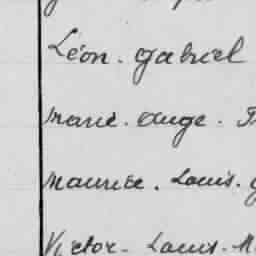 Léon. Gabriel
Marie. Ange.
Maurice. Louis.
Victor. Louis.